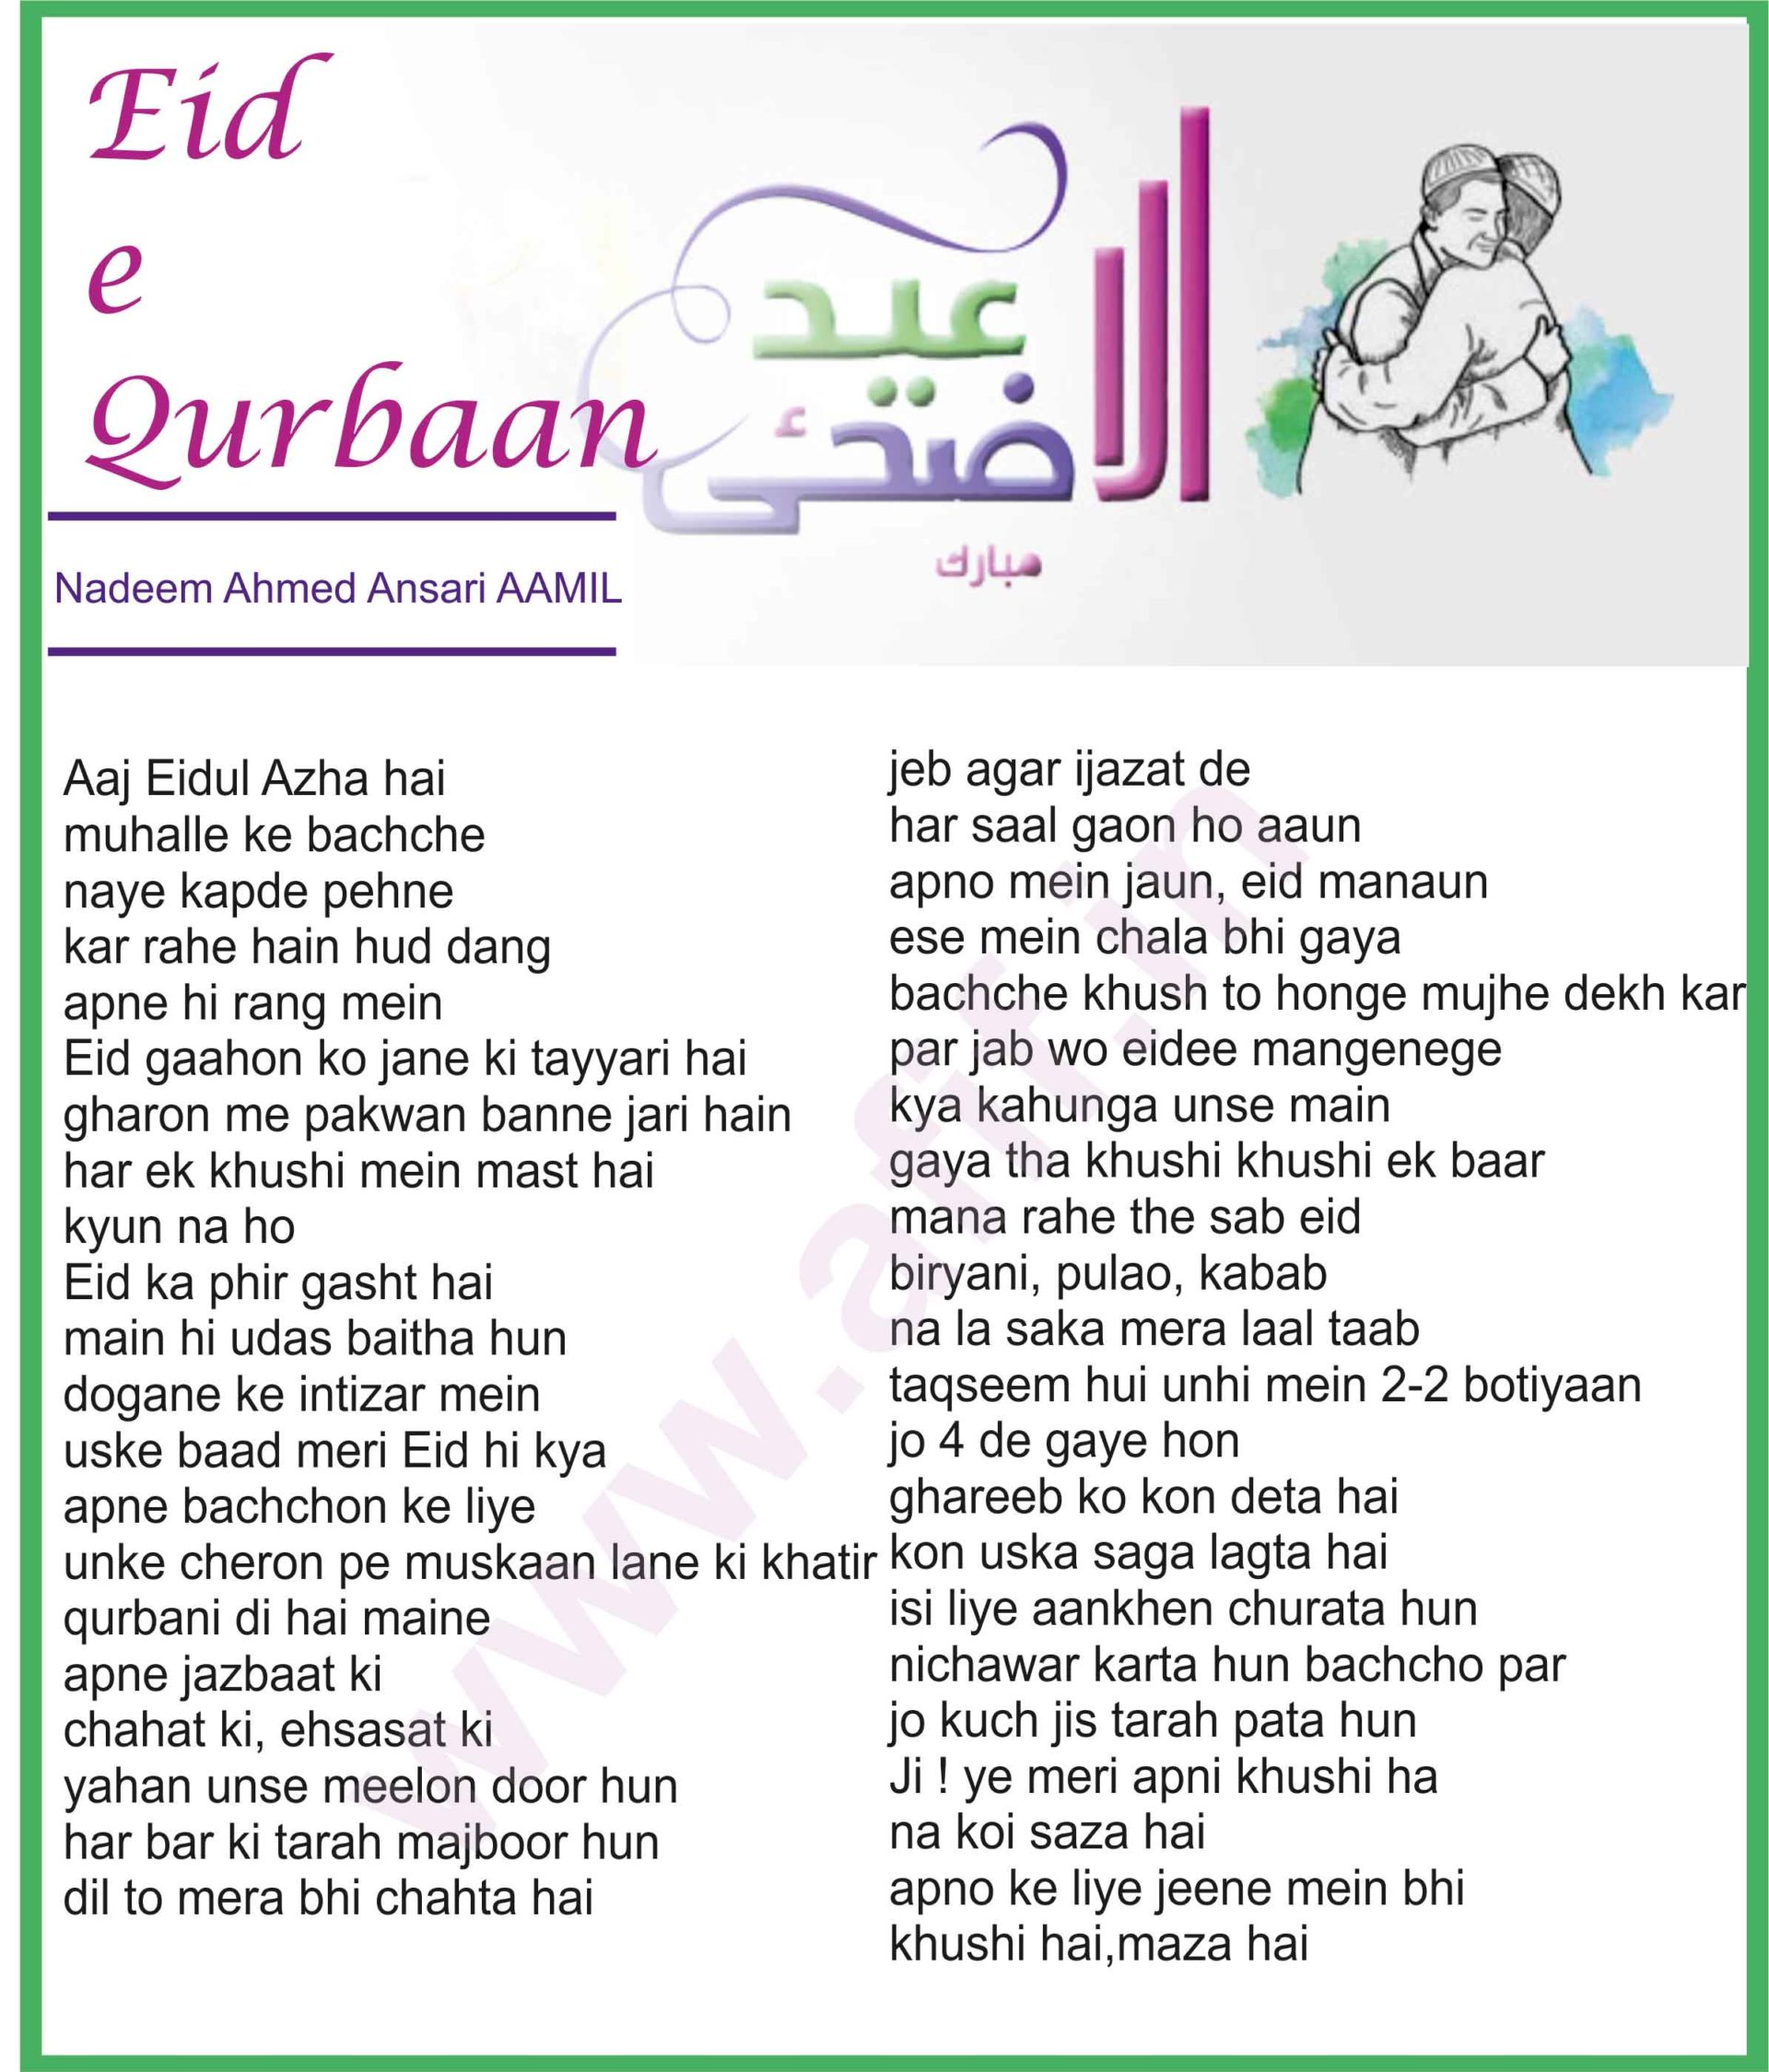 Eid
e
Qurbaan
عيد
الاضحىء
مبارك
Nadeem Ahmed Ansari AAMIL
Aaj Eidul Azha hai
muhalle ke bachche
naye kapde pehne
kar rahe hain hud dang
apne hi rang mein
Eid gaahon ko jane ki tayyari hai
gharon me pakwan banne jari hain
har ek khushi mein mast hai
kyun na ho
Eid ka phir gasht hai
main hi udas baitha hun
dogane ke intizar mein
uske baad meri Eid hi kya
apne bachchon ke liye
unke cheron pe muskaan lane ki khatir
qurbani di hai maine
apne jazbaat ki
chahat ki, ehsasat ki
yahan unse meelon door hun
har bar ki tarah majboor hun
dil to mera bhi chahta hai
jeb agar ijazat de
har saal gaon ho aaun
apno mein jaun, eid manaun
ese mein chala bhi gaya
bachche khush to honge mujhe dekh kar
par jab wo eidee mangenege
kya kahunga unse main
gaya tha khushi khushi ek baar
mana rahe the sab eid
biryani, pulao, kabab
na la saka mera laal taab
taqseem hui unhi mein 2-2 botiyaan
jo 4 de gaye hon
ghareeb ko kon deta hai
kon uska saga lagta hai
isi liye aankhen churata hun
nichawar karta hun bachcho par
jo kuch jis tarah pata hun
Ji ! ye meri apni khushi ha
na koi saza hai
apno ke liye jeene mein bhi
khushi hai,maza hai
www.afif.in